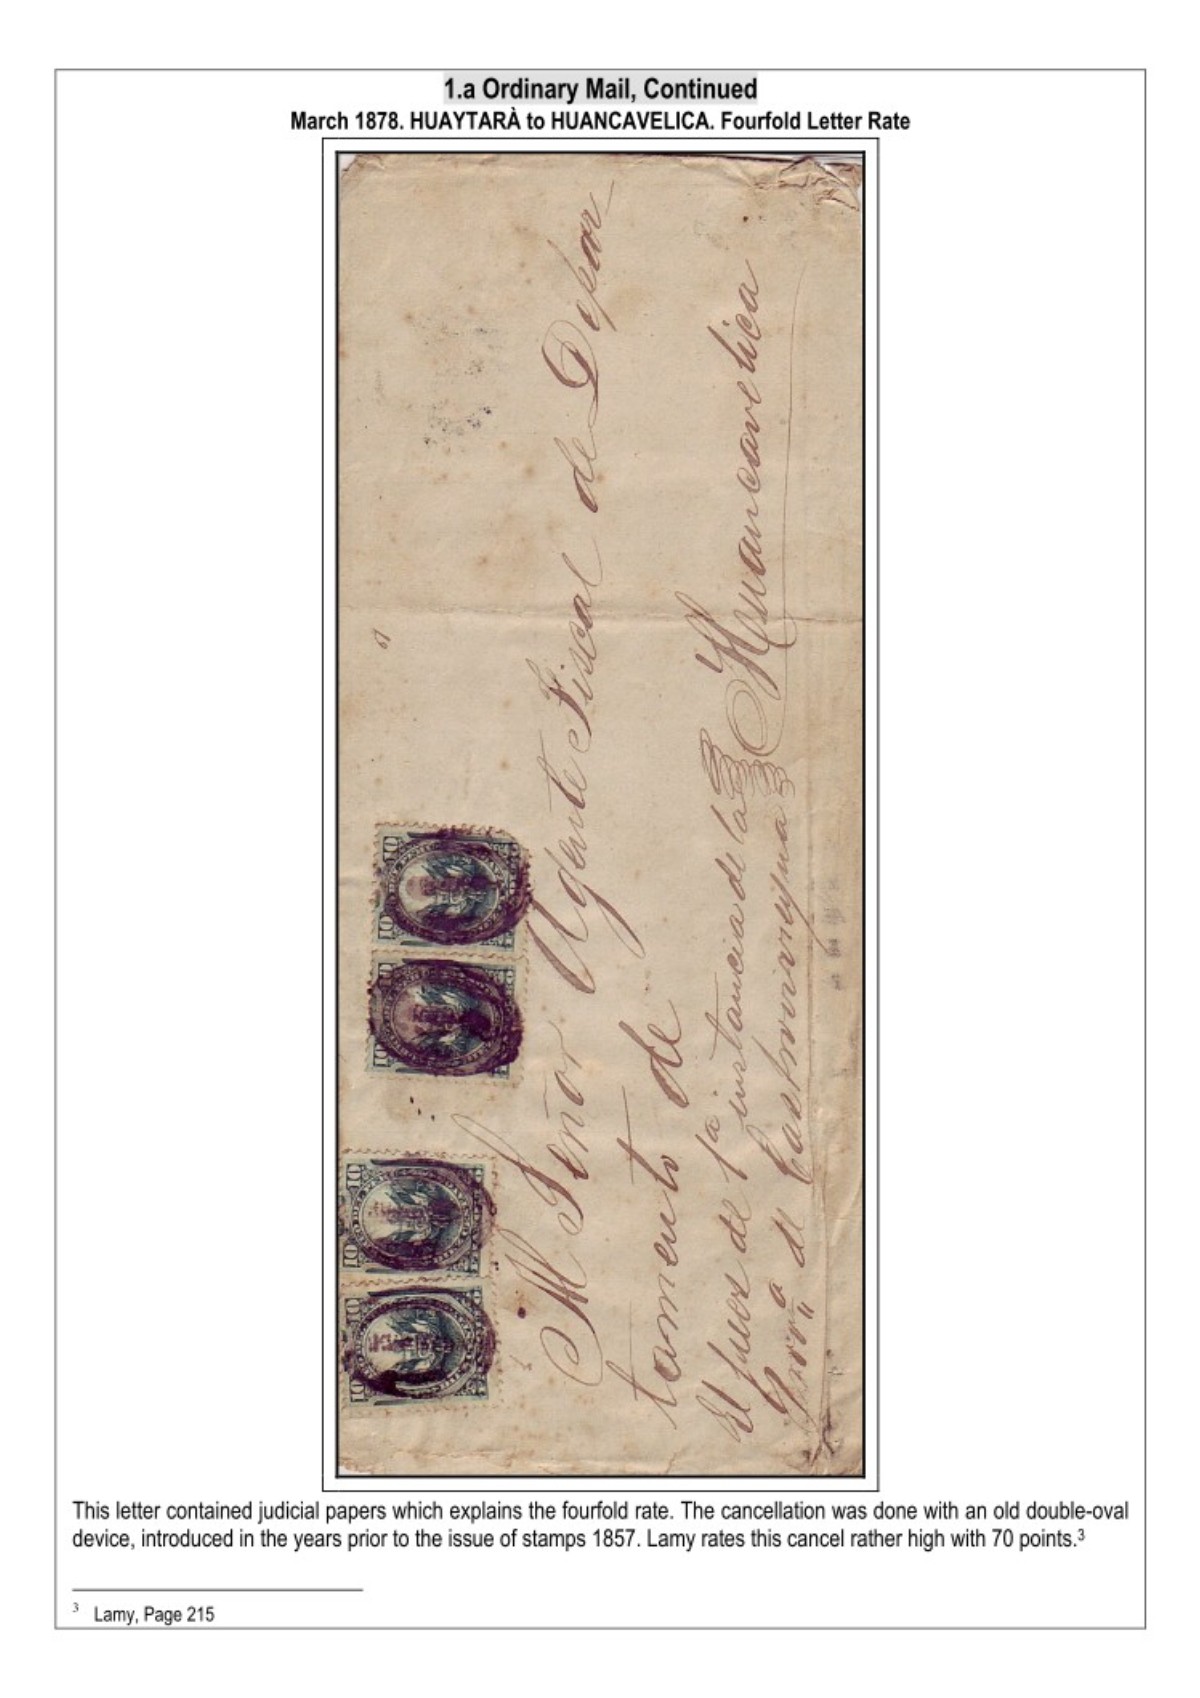 1.a Ordinary Mail, Continued
March 1878. HUAYTARÀ to HUANCAVELICA. Fourfold Letter Rate
Al Señor Agente Fiscal de Depar-
tamento de
Huancavelica
El Juez de 1ª instancia de la
de Castrovirreyna
10 10
10 10
10 10
10 10
This letter contained judicial papers which explains the fourfold rate. The cancellation was done with an old double-oval
device, introduced in the years prior to the issue of stamps 1857. Lamy rates this cancel rather high with 70 points.3
3 Lamy, Page 215